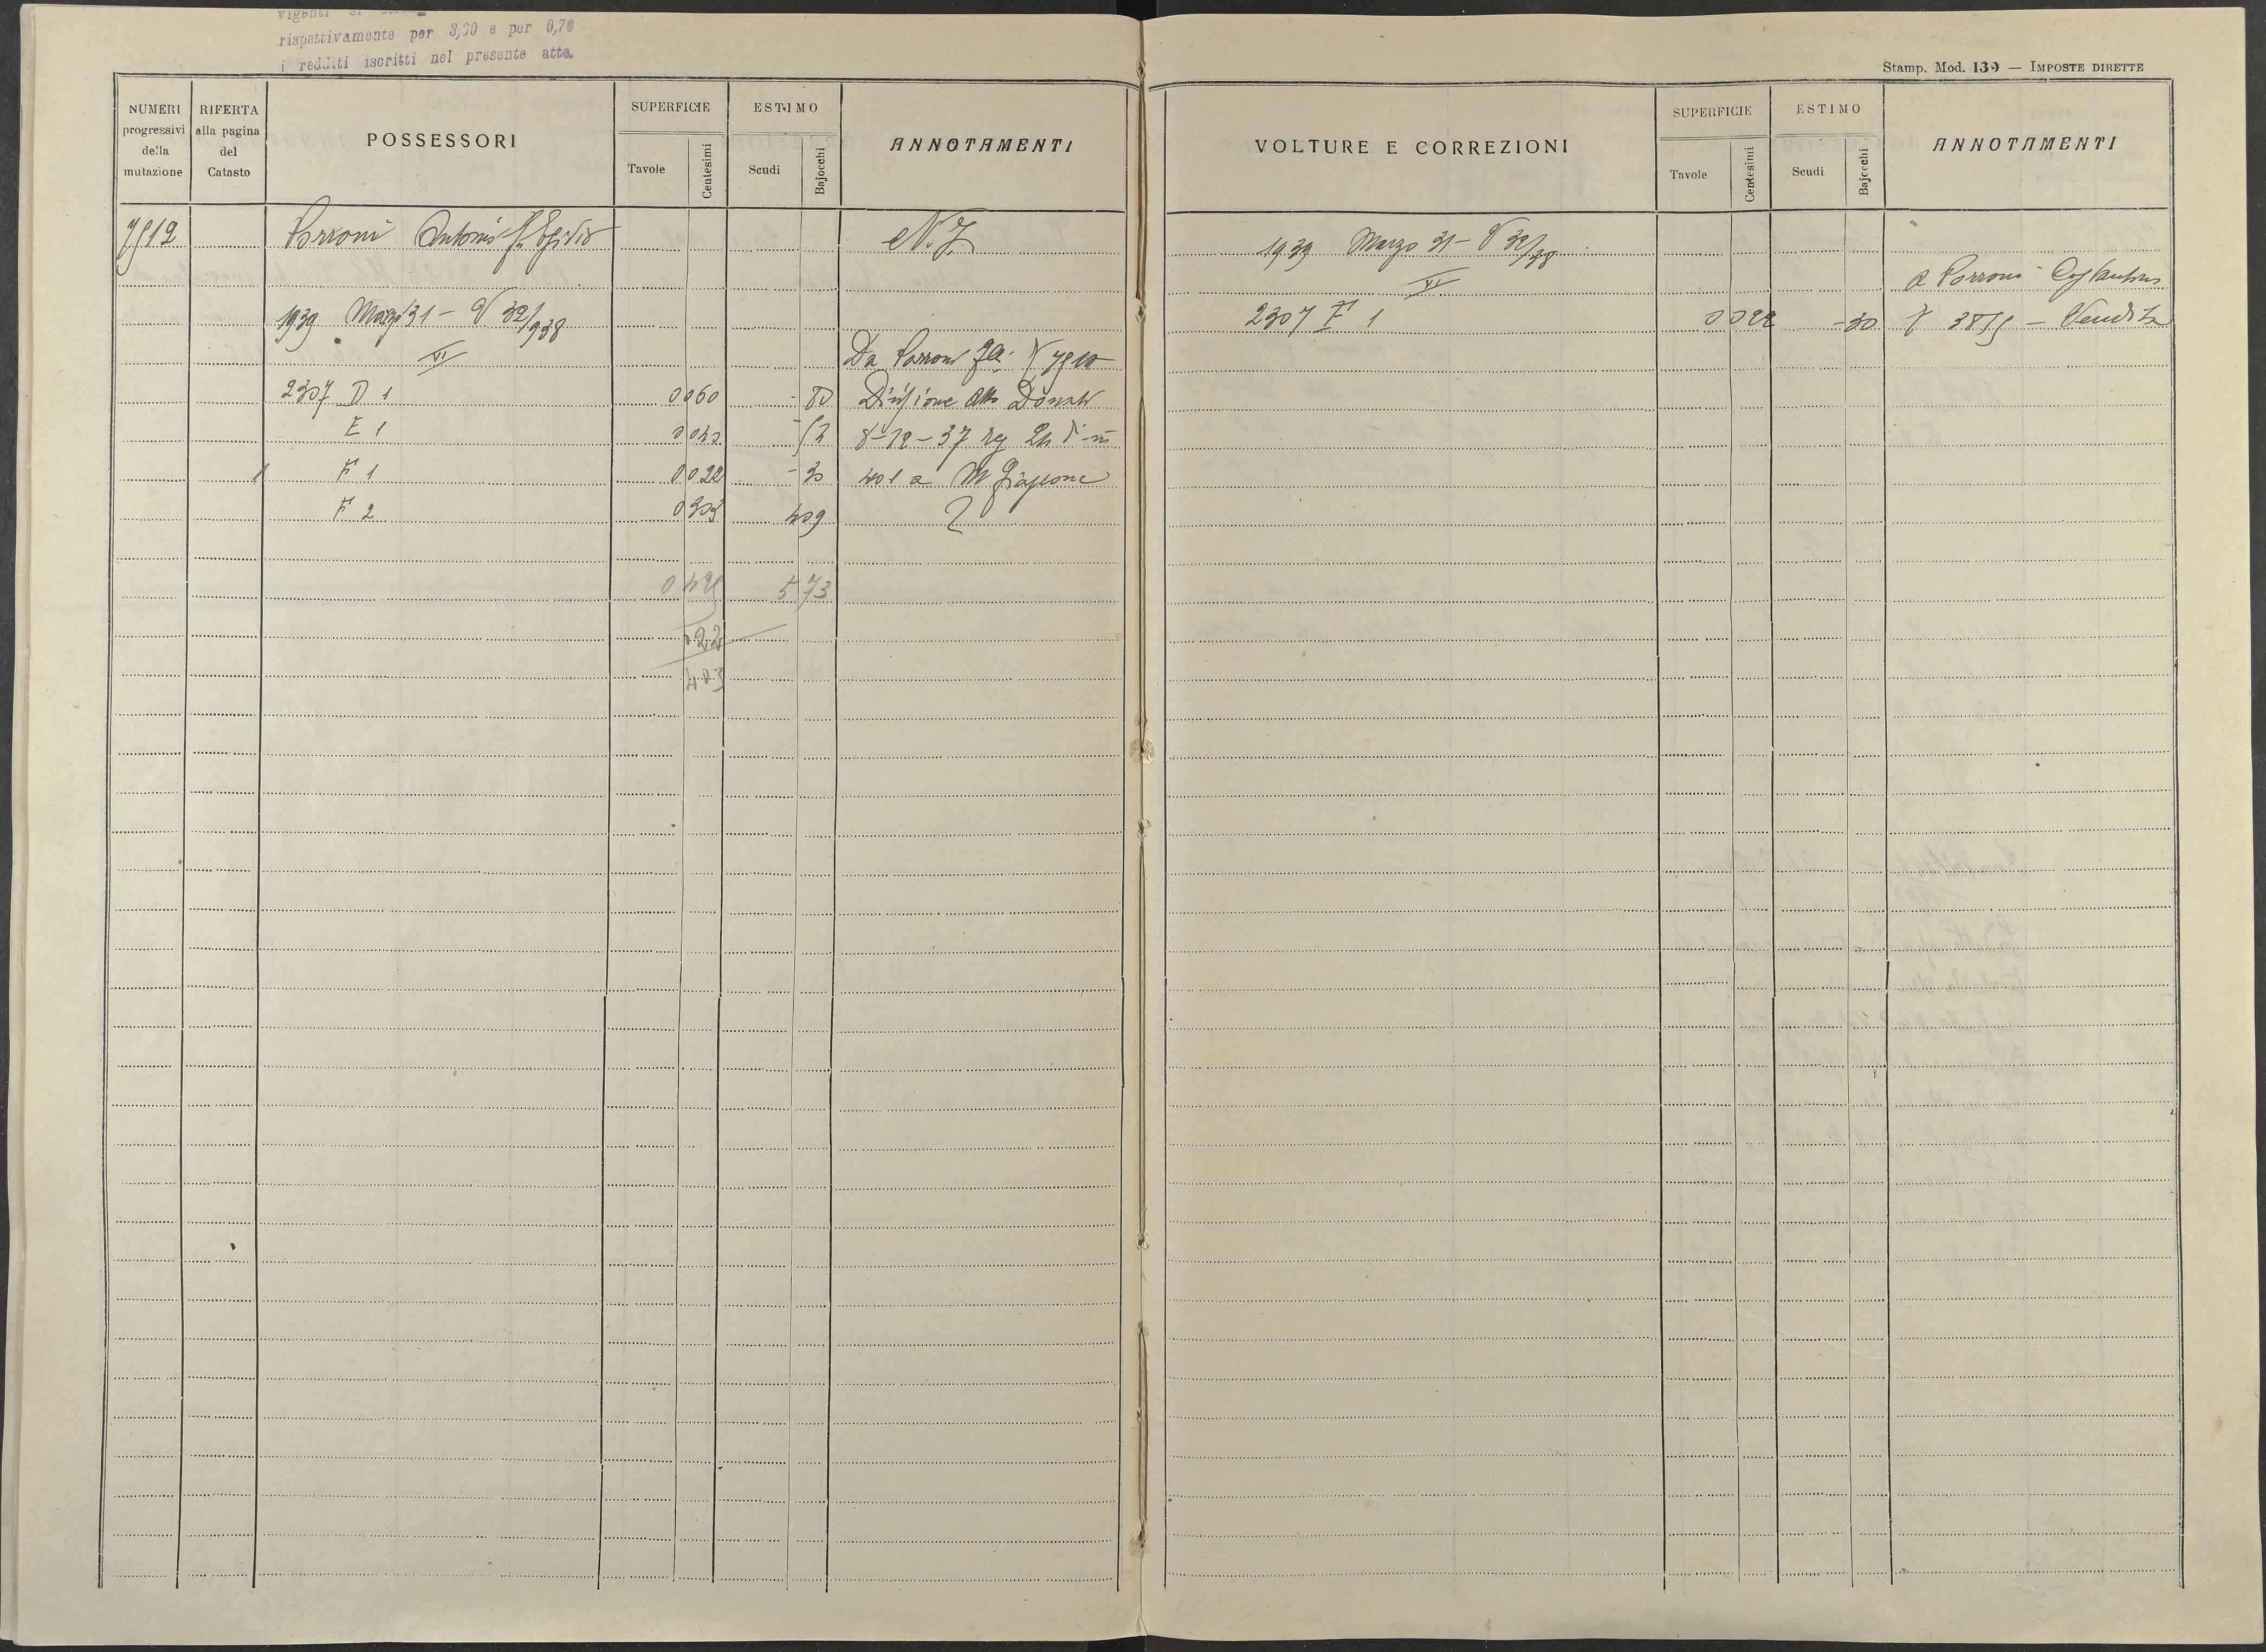 rispettivamente per 3,00 e per 0,70
i redditi iscritti nel presente atto.
NUMERI progressivi della mutazione
RIFERTA alla pagina del Catasto
POSSESSORI
SUPERFICIE
Tavole
Centesimi
ESTIMO
Scudi
Bajocchi
ANNOTAMENTI
Porroni Antonio fu Egidio
N.
1939 Marzo 31 - V 32/938
VI
Da Porroni
2307 D 1 0 060 - 80 Divisione atto Donati
E 1 0 040 8-12-37
F 1 0 022 - 30 401 a M Giassone
F 2 0 303 4 09
0 425 5 73
022
403
Stamp. Mod. 139 — IMPOSTE DIRETTE
VOLTURE E CORREZIONI
SUPERFICIE
Tavole
Centesimi
ESTIMO
Scudi
Bajocchi
ANNOTAMENTI
1939 Marzo 31 - V 32/38
VI
a Porroni Costantino
2307 F 1 0 022 - 30 Vendita